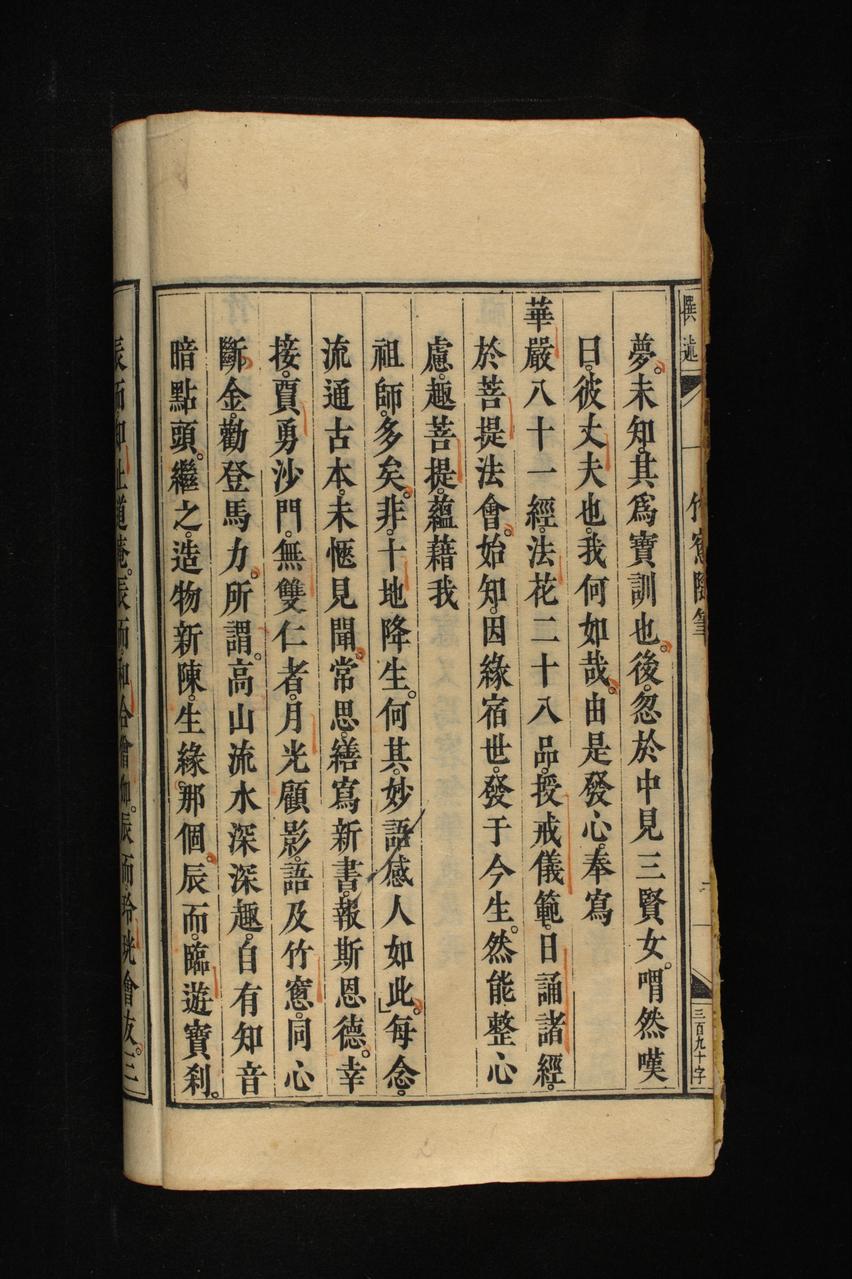 撰述
竹窻隨筆
三百九十字
夢。未知。其爲寶訓也。後。忽於中見三賢女。喟然嘆
曰。彼丈夫也。我何如哉。由是發心。奉寫
華嚴八十一經。法花二十八品。授戒儀範。日誦諸經。
於菩提法會。始知。因緣宿世。發于今生。然能整心
慮。趣菩提。蘊藉我
祖師。多矣。非。十地降生。何其。妙語感人如此。」每念。
流通古本。未愜見聞。常思。繕寫新書。報斯恩德。幸
接。賈勇沙門。無雙仁者。月光顧影。語及竹窻。同心
斷金。勸登馬力。所謂。高山流水深深趣。自有知音
暗點頭。繼之。造物新陳。生緣。那個。辰而。臨遊寶刹。
辰而知止道菴。辰而和合會如。辰而玲珖會友。三